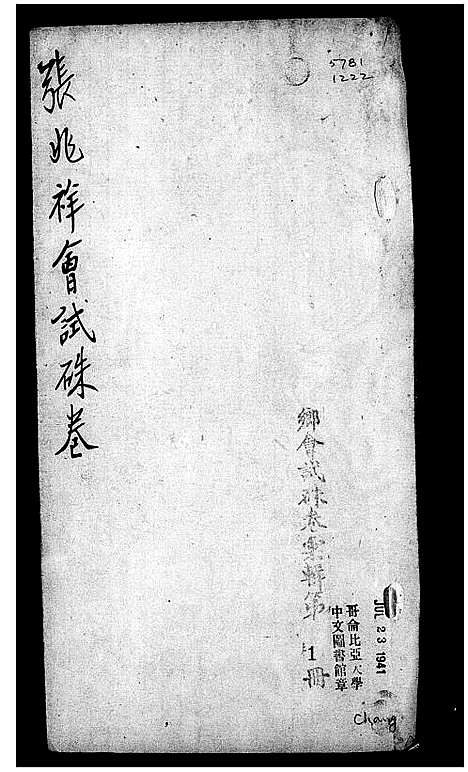 5781
1222
張兆祥會試硃卷
鄉會試硃卷彙輯第1冊
哥倫比亞大學
中文圖書館章
JUL 23 1941
Chang